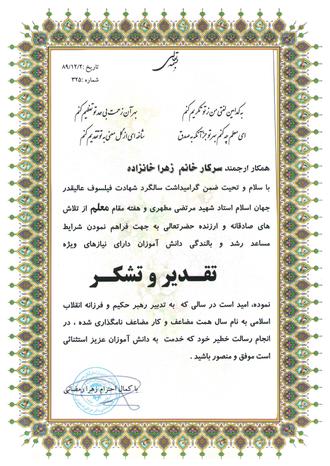 بسمه تعالی
تاریخ: ۸۹/۱۲/۲
شماره: ۳۲۵
به کدامین لغتی من ز تو تکریم کنم
بهر آن زحمت بی حد تو تعظیم کنم
ای معلم چه کنم بهر تو جز آنکه به صدق
شانه‌ای از گل معنی به تو تقدیم کنم
همکار ارجمند سرکار خانم زهرا خانزاده
با سلام و تحیت ضمن گرامیداشت سالگرد شهادت فیلسوف عالیقدر
جهان اسلام استاد شهید مرتضی مطهری و هفته مقام معلم از تلاش
های صادقانه و ارزنده حضرتعالی به جهت فراهم نمودن شرایط
مساعد رشد و بالندگی دانش آموزان دارای نیازهای ویژه
تقدیر و تشکر
نموده، امید است در سالی که به تدبیر رهبر حکیم و فرزانه انقلاب
اسلامی به نام سال همت مضاعف و کار مضاعف نامگذاری شده ، در
انجام رسالت خطیر خود که خدمت به دانش آموزان عزیز استثنائی
است موفق و منصور باشید .
با کمال احترام زهرا رمضانی